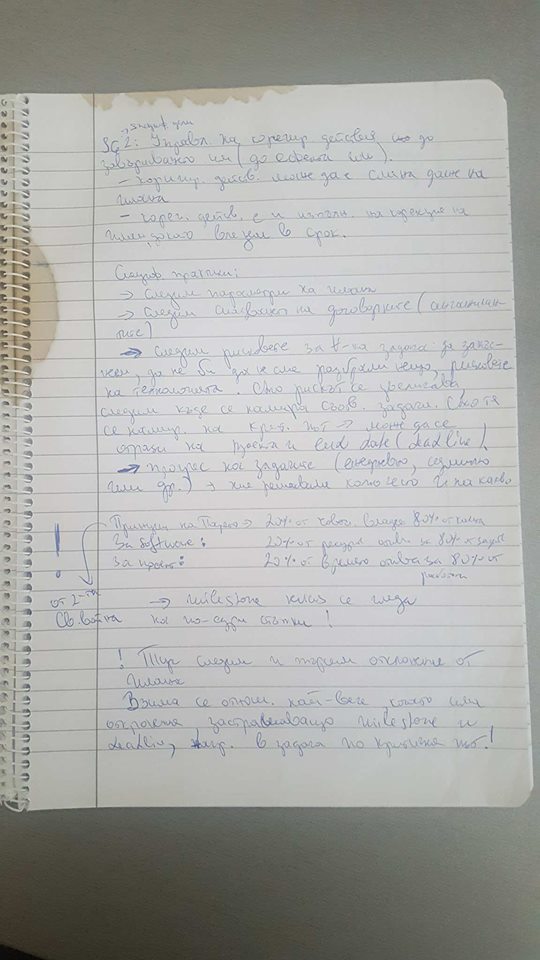 SG 2: Управл. на корегир. действия до
завършването им (до ефекта им).
- коригир. действ. може да е смяна даже на
плана
- корег. действ. е и изпълн. на корекция на
план, докато влезем в срок.
Специф практики:
→ следим параметри на плана
→ следим на договорките
→ следим рисковете за t-на задача: да закъс-
неем, да не би да не сме разбрали нещо, рисковете
на технологията. Ако рискът се увеличава,
следим къде се намира съотв. задача. Ако тя
се намир. на крит. път → може да се
отрази на проекта и end date (deadline)!
→ прогрес на задачите (ежедневно, седмично
или др.) → ние решаваме колко често и по какво
! Принцип на Парето → 20% от човеч. владее 80% от
За software: 20% ресурс отива за 80% от
За проект: 20% от времето отива за 80% от
работата
от 2-та
Св. война
→ milestone се гледа
на по-едри стъпки!
! Тук следим и търсим отклонение от
плана
Взима се отнош. най-вече, когато има
отклонения застрашаващо milestone и
deadline, напр. в задача по критичния път!